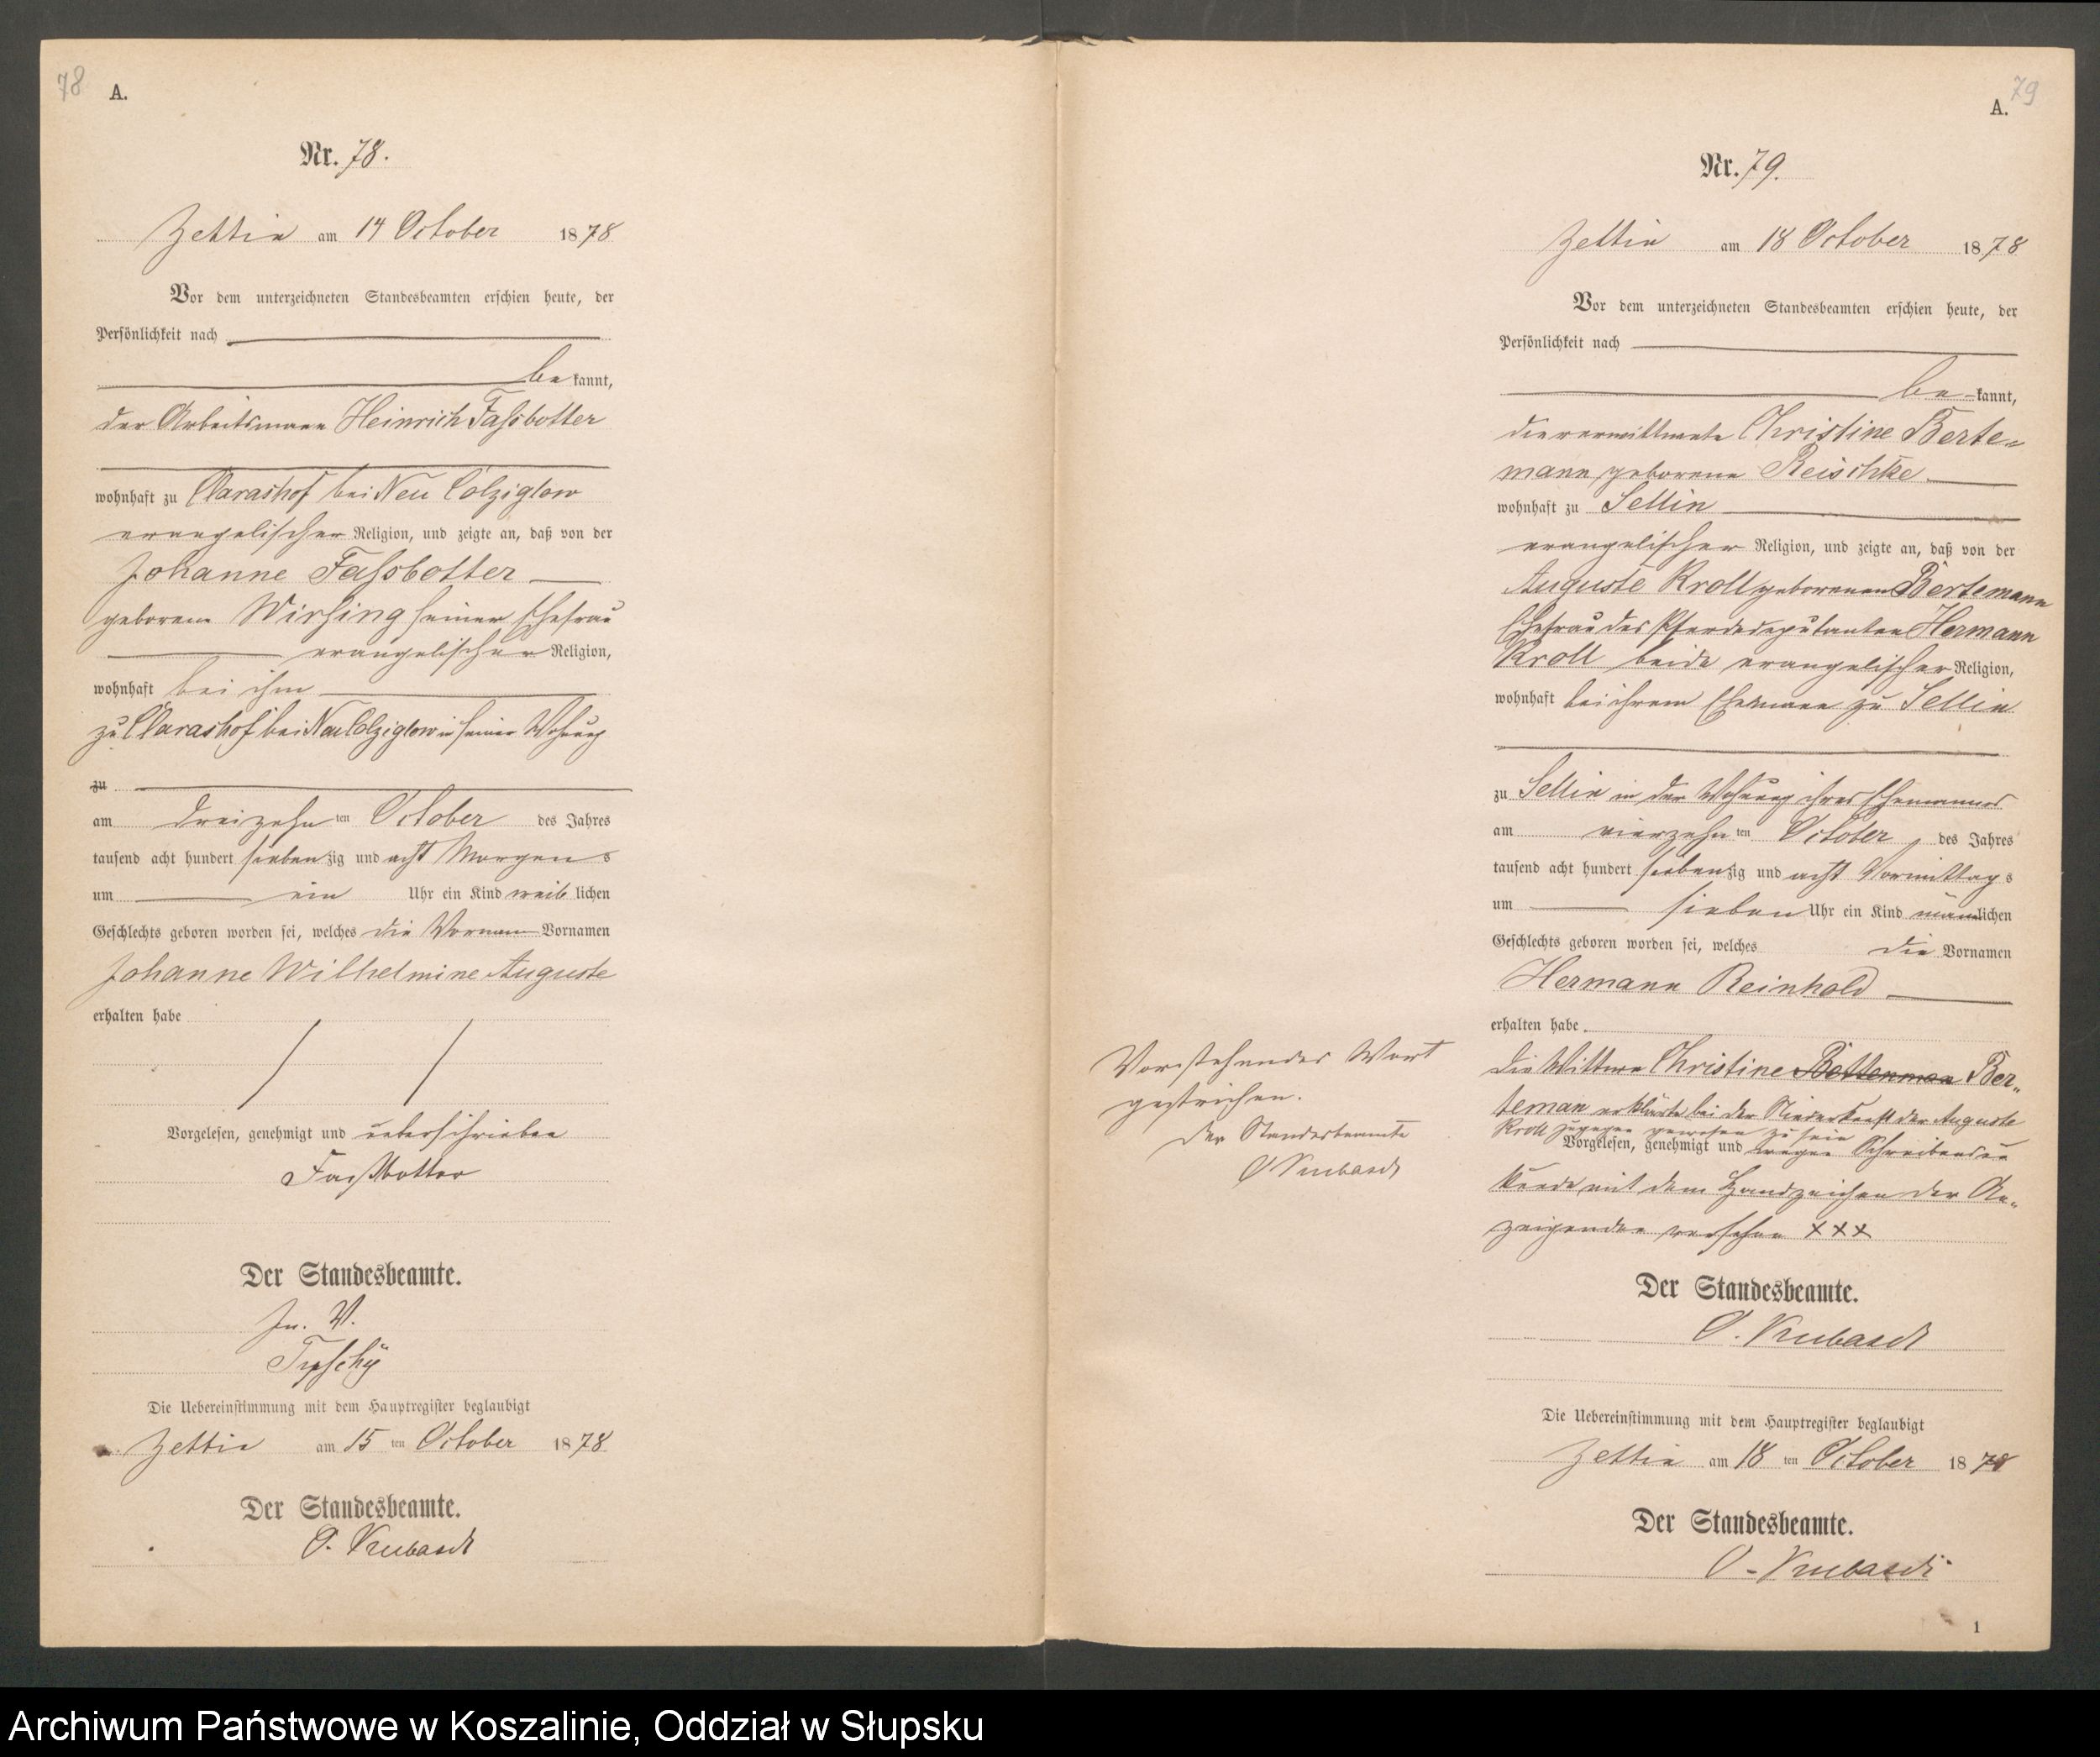 78
A.
Nr. 78.
Zettin am 14 October 1878
Vor dem unterzeichneten Standesbeamten erschien heute, der
Persönlichkeit nach
bekannt,
der Arbeitsmann Heinrich Fassbotter
wohnhaft zu Clarashof bei Neu Colziglow
evangelischer Religion, und zeigte an, daß von der
Johanne Fassbotter
geborene Wirsing seiner Ehefrau
evangelischer Religion,
wohnhaft bei ihm
zu Clarashof bei Neu Colziglow in seiner Wohnung
zu
am dreizehnten October des Jahres
tausend acht hundert siebenzig und acht Morgens
um ein Uhr ein Kind weiblichen
Geschlechts geboren worden sei, welches die Vornam Vornamen
Johanne Wilhelmine Auguste
erhalten habe
Vorgelesen, genehmigt und unterschrieben
Faßbotter
Der Standesbeamte.
In. V.
Die Uebereinstimmung mit dem Hauptregister beglaubigt
Zettin am 15 ten October 1878
Der Standesbeamte.
O.
79
A.
Nr. 79.
Zettin am 18 October 1878
Vor dem unterzeichneten Standesbeamten erschien heute, der
Persönlichkeit nach
bekannt,
die verwittwete Christine Berte-
mann geborene Reischke
wohnhaft zu Sellin
evangelischer Religion, und zeigte an, daß von der
Auguste Kroll geborenen Bertemann
Ehefrau des Pferdedeputanten Hermann
Kroll beide evangelischer Religion,
wohnhaft bei ihrem Ehemann zu Sellin
zu Sellin in der Wohnung ihres Ehemannes
am vierzehnten October des Jahres
tausend acht hundert siebenzig und acht Vormittags
um sieben Uhr ein Kind männlichen
Geschlechts geboren worden sei, welches die Vornamen
Hermann Reinhold
erhalten habe.
Die Wittwe Christine Bottenman Ber-
teman erklärte bei der Niederkunft der Auguste
Kroll zugegen gewesen zu sein
Vorgelesen, genehmigt und wegen Schreibensun
kunde mit dem Handzeichen der An-
zeigenden versehen +++
Vorstehendes Wort
gestrichen.
Der Standesbeamte
O
Der Standesbeamte.
O.
Die Uebereinstimmung mit dem Hauptregister beglaubigt
Zettin am 18 ten October 1878
Der Standesbeamte.
O.
1
Archiwum Państwowe w Koszalinie, Oddział w Słupsku